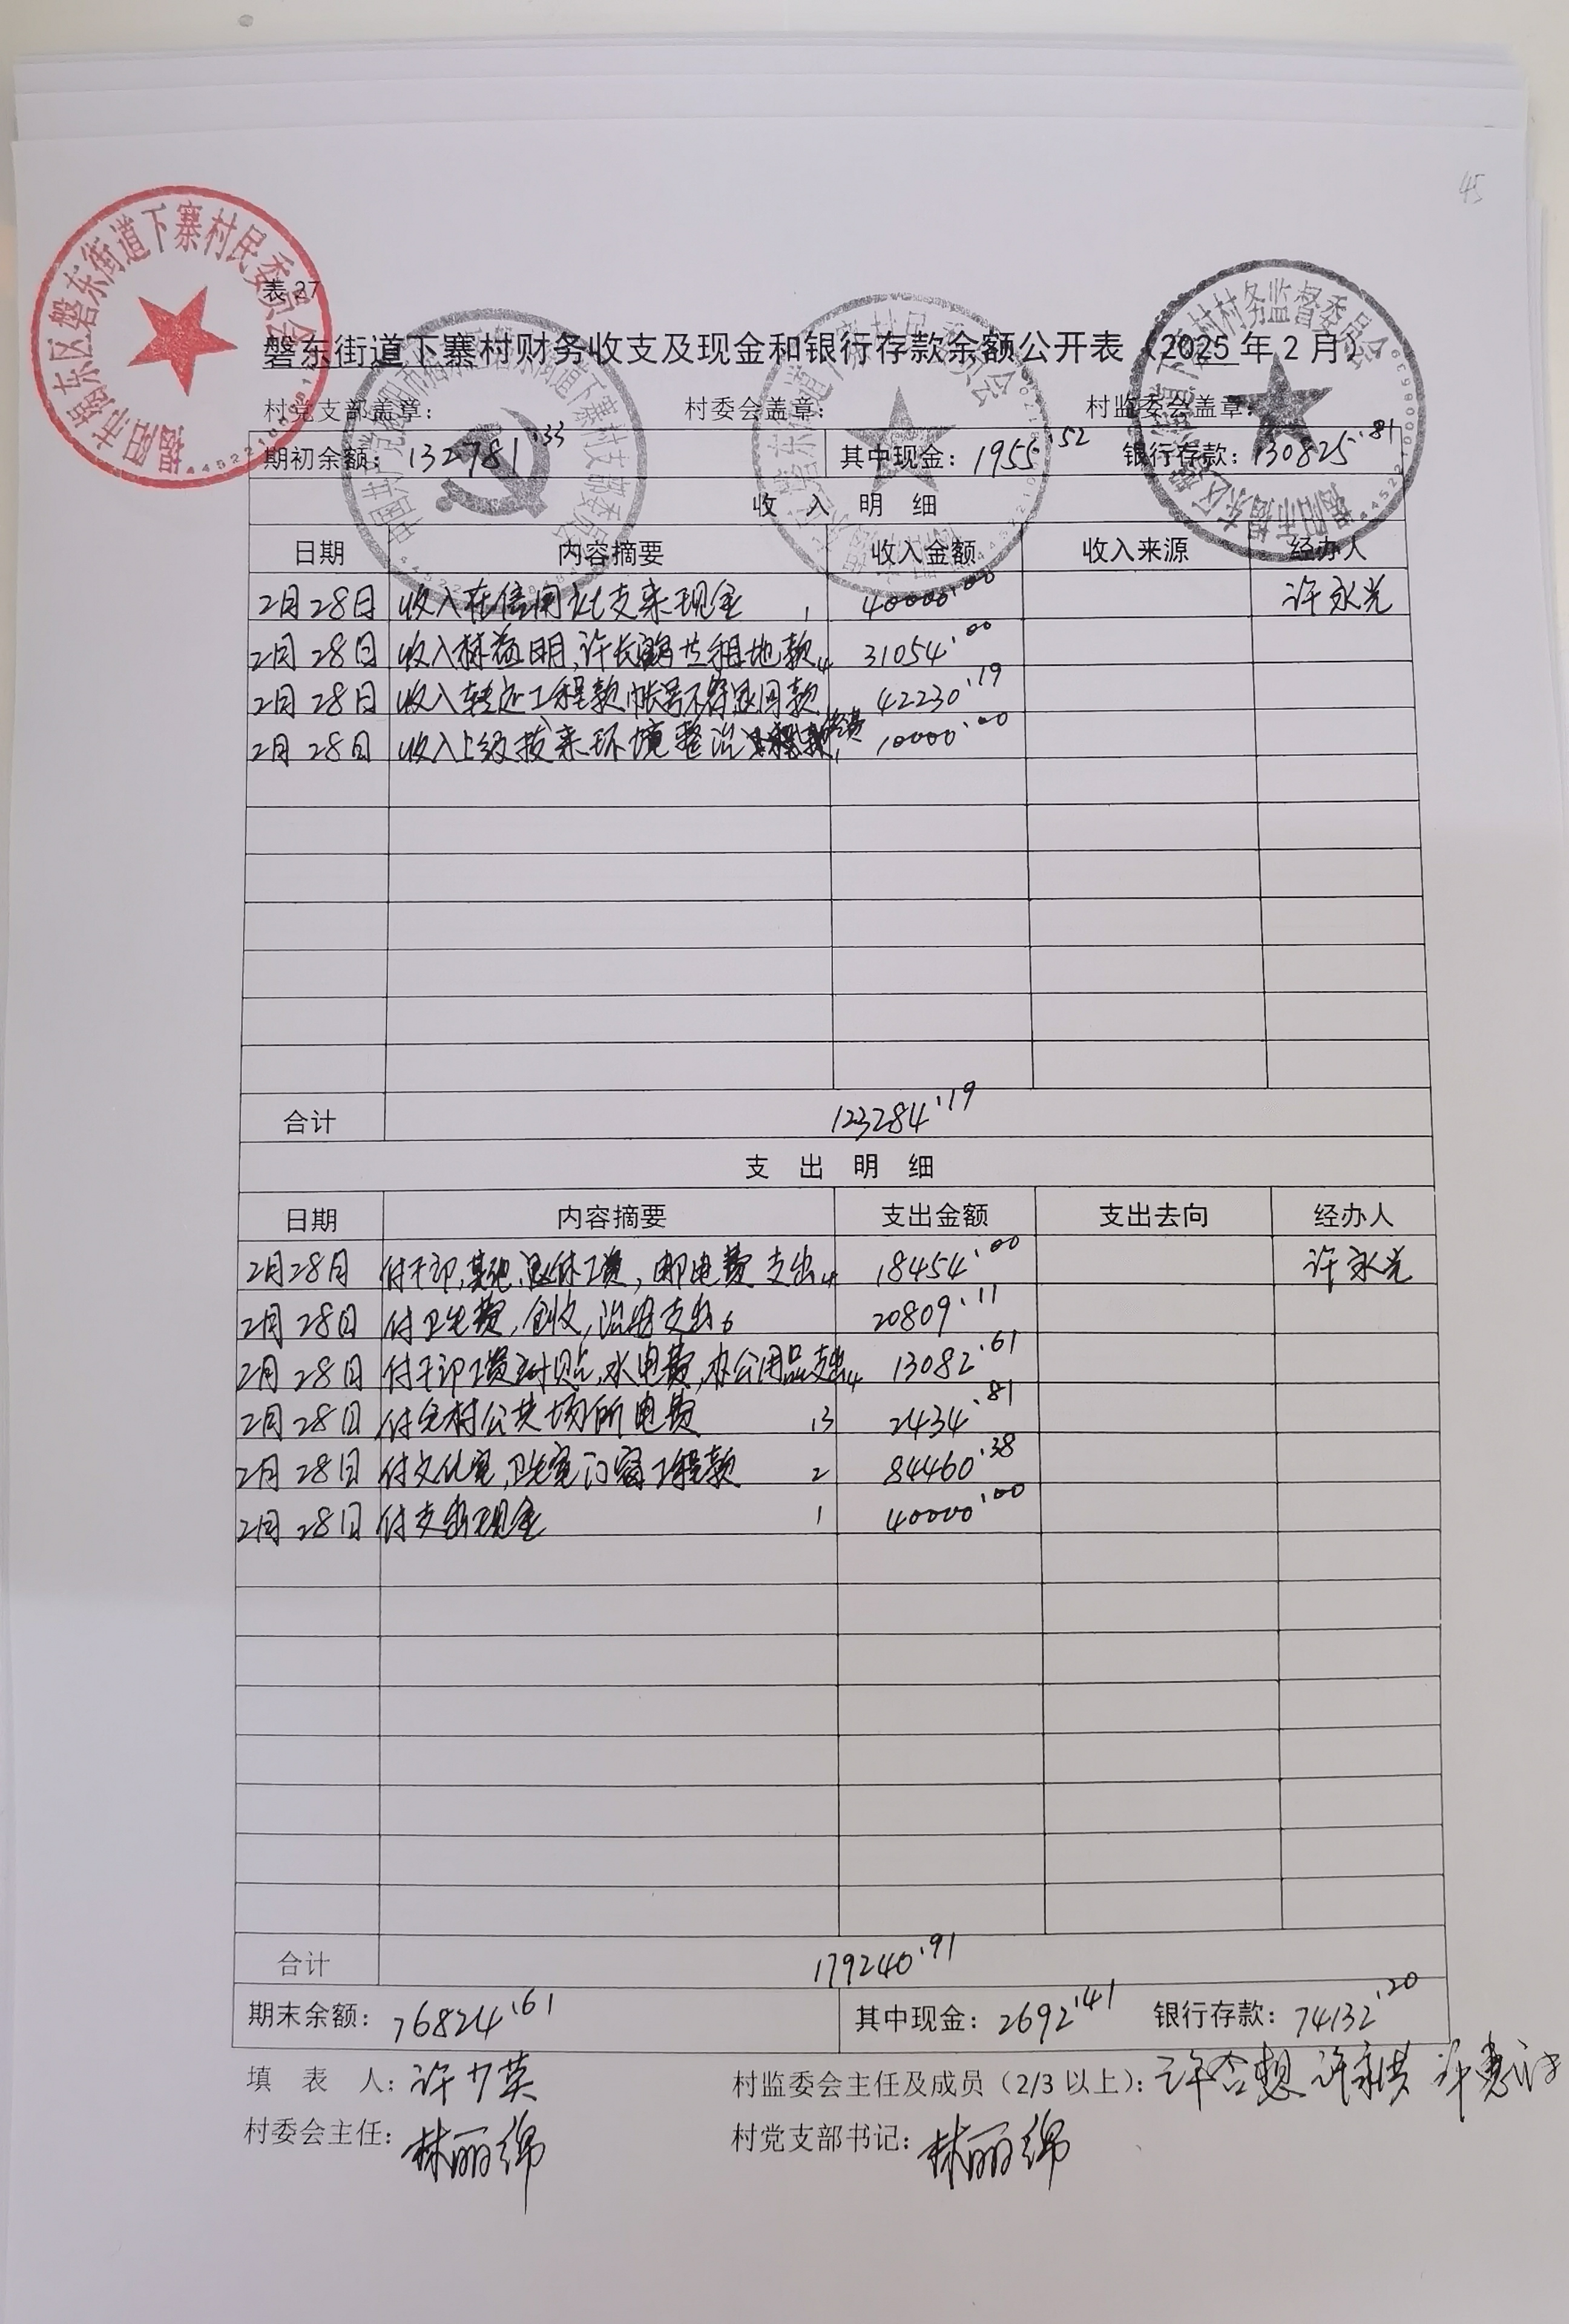 45
揭阳市揭东区磐东街道下寨村民委员会
表 27
磐东街道下寨村财务收支及现金和银行存款余额公开表（2025 年 2 月）
村党支部盖章： 村委会盖章： 村监委会盖章：
期初余额：132781.33 其中现金：1955.52 银行存款：130825.81
收 入 明 细
日期 内容摘要 收入金额 收入来源 经办人
2月28日 收入在信用社支来现金 1 40000.00 许永光
2月28日 收入林益明,许长鹤共租地款 4 31054.00
2月28日 收入转定工程款帐号不符退回款 42230.19
2月28日 收入上级拨来环境整治经费 1 10000.00
合计 123284.19
支 出 明 细
日期 内容摘要 支出金额 支出去向 经办人
2月28日 付干部,其他,退休工资,邮电费支出 4 18454.00 许永光
2月28日 付卫生费,创收,治安支出 6 20809.11
2月28日 付干部工资补贴,水电费,办公用品支出 4 13082.61
2月28日 付完村公共场所电费 13 2434.81
2月28日 付文化室,卫生室门窗工程款 2 84460.38
2月28日 付支出现金 1 40000.00
合计 179240.91
期末余额：76824.61 其中现金：2692.41 银行存款：74132.20
填 表 人：许少英 村监委会主任及成员（2/3 以上）：许合想
村委会主任：林丽绵 村党支部书记：林丽绵